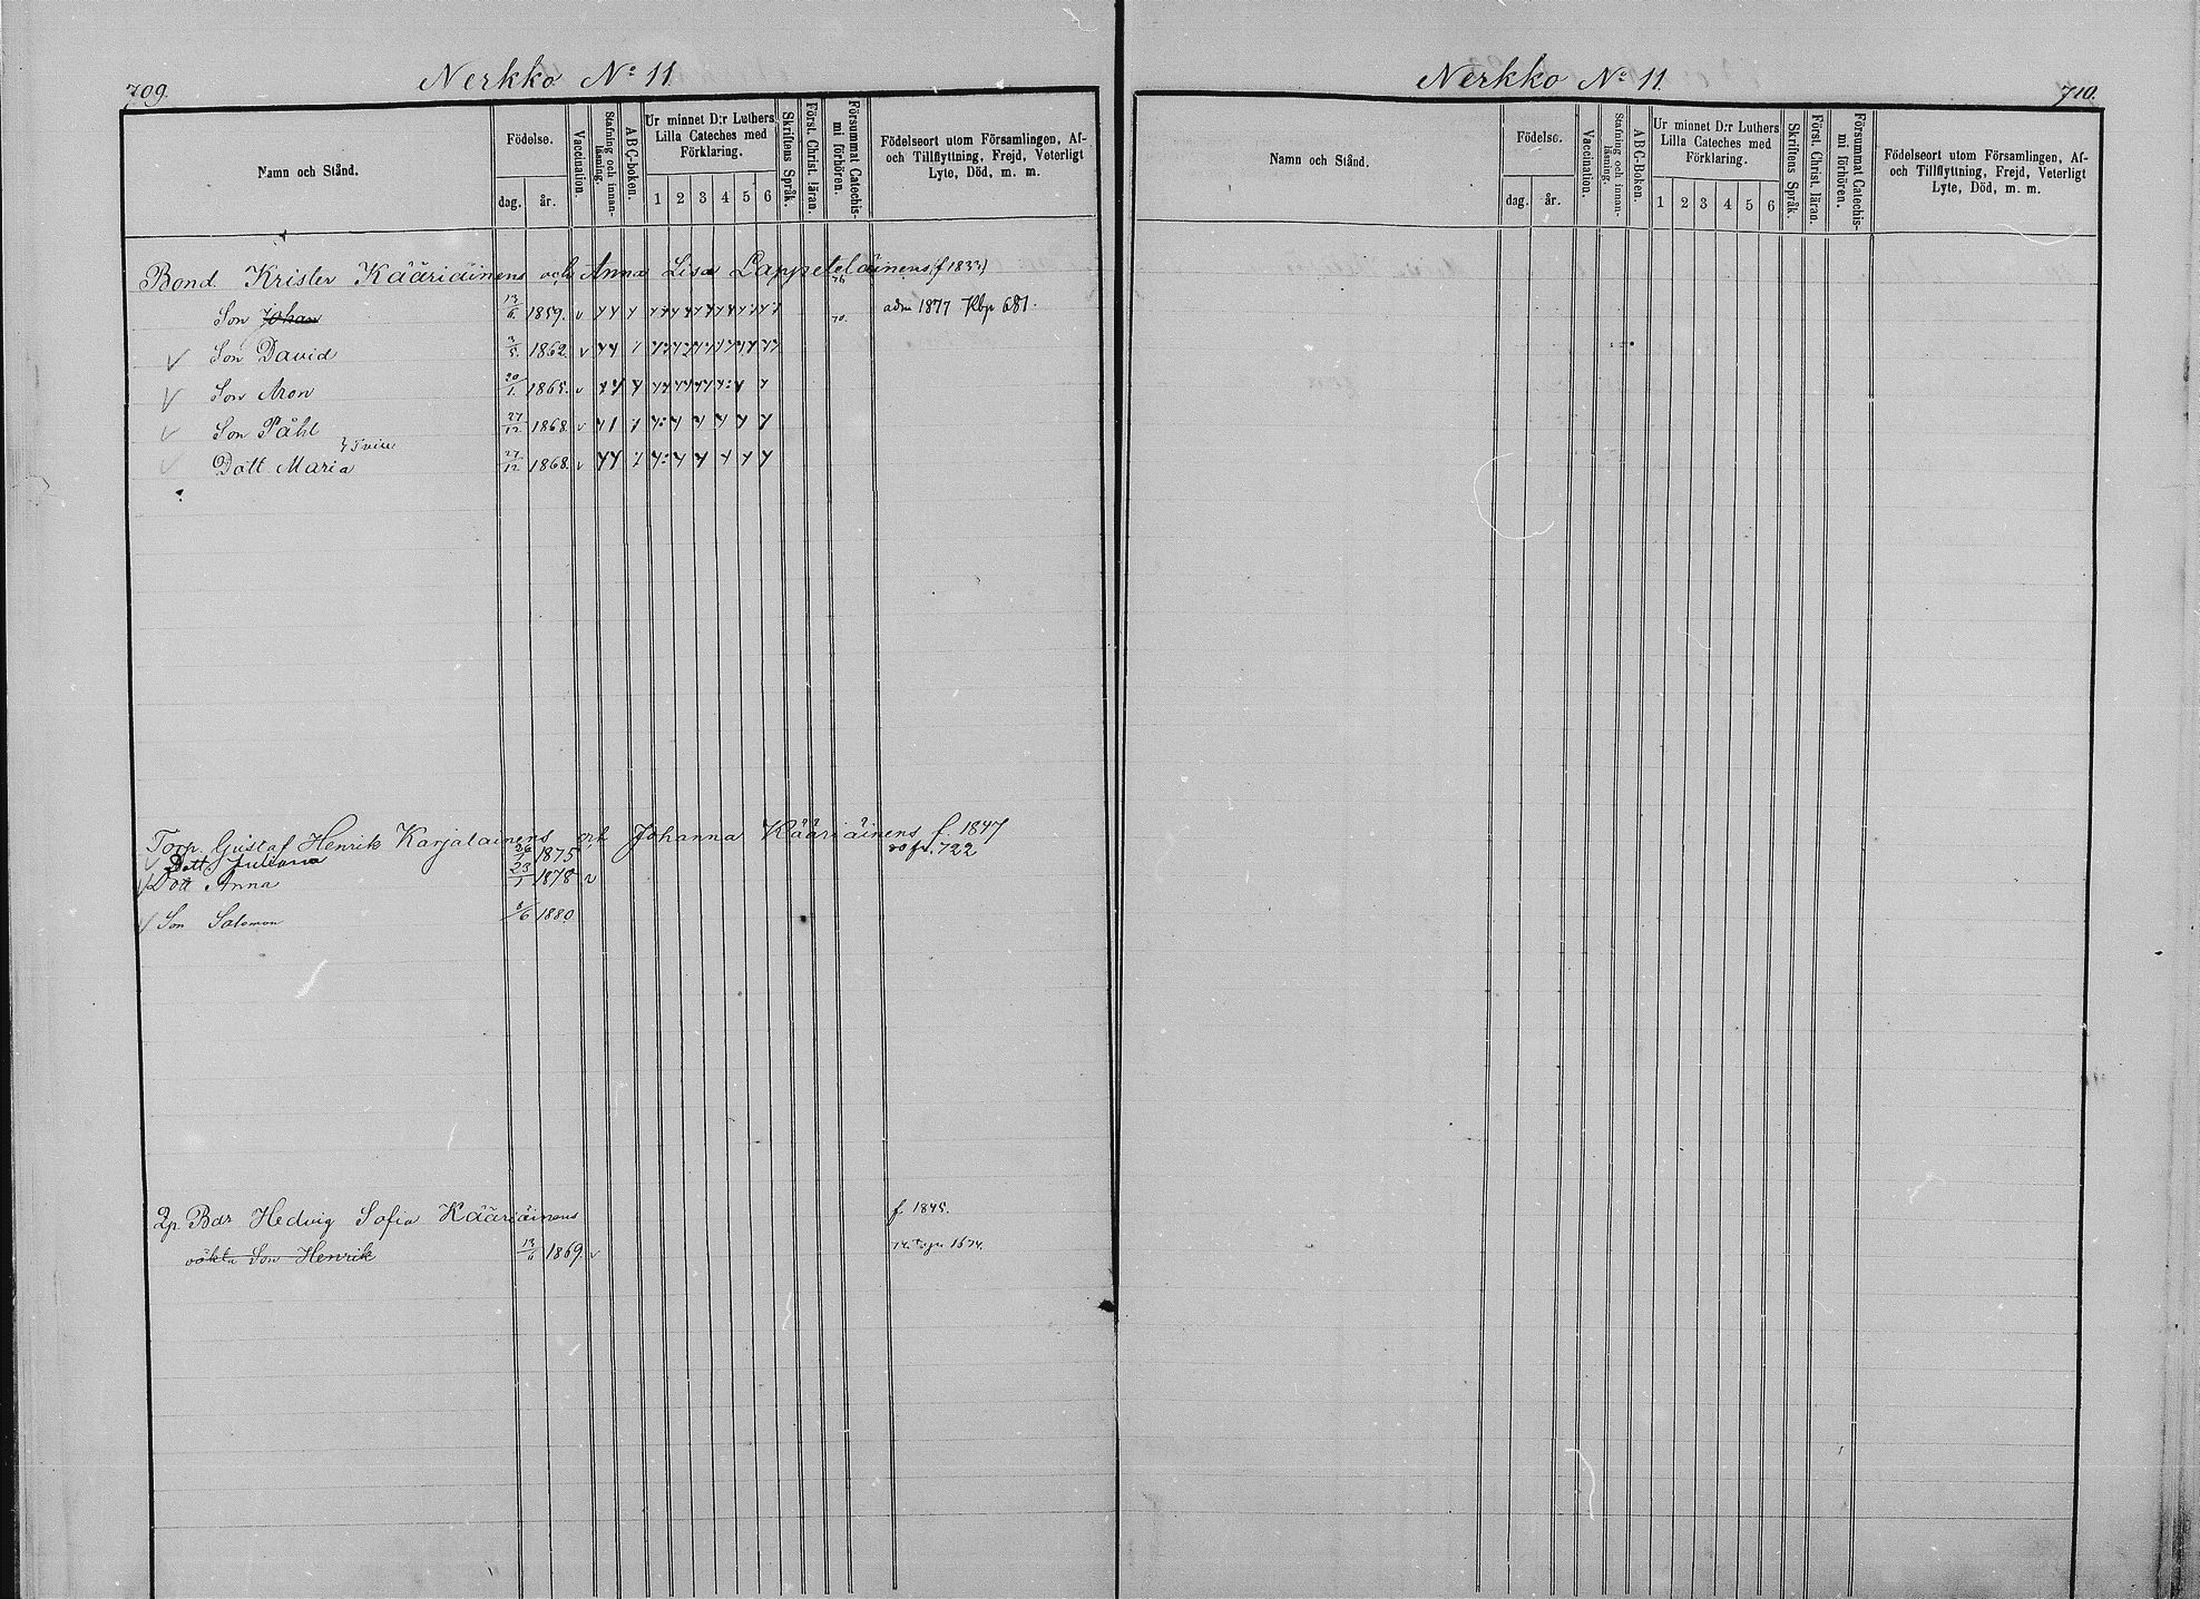 709.
Nerkko No 11.
Namn och Stånd.
Födelse.
dag.
år.
Vaccination.
Stafning och innan-
läsning.
ABC-boken.
Ur minnet D:r Luthers
Lilla Cateches med
Förklaring.
1 2 3 4 5 6
Skriftens Språk.
Först. Christ. läran.
Försummat Catechis-
mi förhören.
Födelseort utom Församlingen, Af-
och Tillflyttning, Frejd, Veterligt
Lyte, Död, m. m.
Bond. Krister Kääriäinens och Anna Lisa Lappeteläinens (f 1833)
76
Son Johan 13/6 1859. v 70. adm 1877 Kbp 681.
Son David 3/5 1862 v
Son Aron 20/1 1865. v
Son Påhl 27/12 1868 v
Tvill
Dott Maria 27/12 1868. v
Torp. Gustaf Henrik Karjalainens och Johanna Kääriäinens f. 1847
Dott Juliana 26/1 1875 722
Dott Anna 23/1 1878 v
Son Salomon 8/6 1880
Hedvig Sofia Kääriäinens f 1845.
oäkta Son Henrik 13/6 1869. v
Nerkko No 11.
710.
Namn och Stånd.
Födelse.
dag.
år.
Vaccination.
Stafning och innan-
läsning.
ABC-Boken.
Ur minnet D:r Luthers
Lilla Cateches med
Förklaring.
1 2 3 4 5 6
Skriftens Språk.
Först. Christ. läran.
Försummat Catechis-
mi förhören.
Födelseort utom Församlingen, Af-
och Tillflyttning, Frejd, Veterligt
Lyte, Död, m. m.